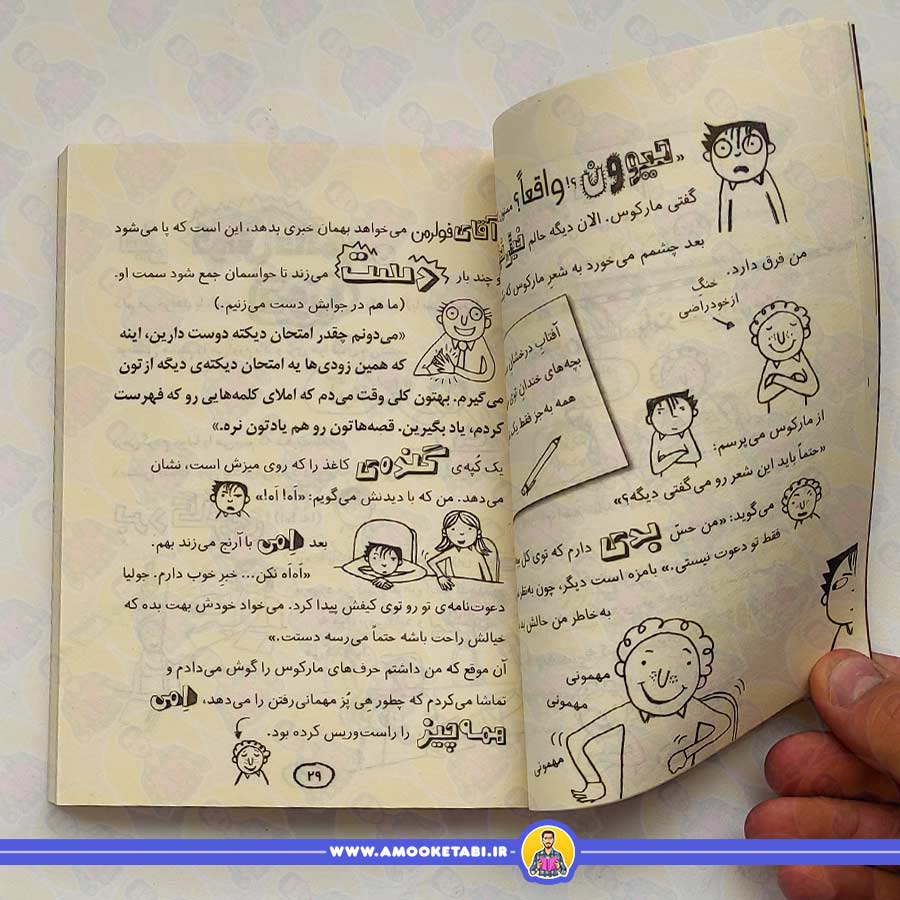 «حیوون؟! واقعاً؟
گفتی مارکوس. الان دیگه حالم
بعد چشمم می‌خورد به شعرِ مارکوس که
من فرق دارد.
خنگ
ازخودراضی
آفتابِ درخشان
بچه‌های خندان توی
همه به‌جز فقط یک
از مارکوس می‌پرسم:
«حتماً باید این شعر رو می‌گفتی دیگه؟»
می‌گوید: «من حسّ بدی دارم که توی کل
فقط تو دعوت نیستی.» بامزه است دیگر، چون به‌نظر
به‌خاطر من حالش بد
مهمونی
مهمونی
مهمونی
آقای فولرمن می‌خواهد بهمان خبری بدهد، این است که پا می‌شود
و چند بار دست می‌زند تا حواسمان جمع شود سمت او.
(ما هم در جوابش دست می‌زنیم.)
«می‌دونم چقدر امتحان دیکته دوست دارین، اینه
که همین زودی‌ها یه امتحان دیکته‌ی دیگه ازتون
می‌گیرم. بهتون کلی وقت می‌دم که املای کلمه‌هایی رو که فهرست
کردم، یاد بگیرین. قصه‌هاتون رو هم یادتون نره.»
یک کُپه‌ی گنده‌ی کاغذ را که روی میزش است، نشان
می‌دهد. من که با دیدنش می‌گویم: «اَه! اَه!»
بعد اِمی با آرنج می‌زند بهم.
«اَه‌اَه نکن... خبرِ خوب دارم. جولیا
دعوت‌نامه‌ی تو رو توی کیفش پیدا کرد. می‌خواد خودش بهت بده که
خیالش راحت باشه حتماً می‌رسه دستت.»
آن موقع که من داشتم حرف‌های مارکوس را گوش می‌دادم و
تماشا می‌کردم که چطور هِی پُز مهمانی‌رفتن را می‌دهد، اِمی
همه‌چیز را راست‌وریس کرده بود.
۲۹
WWW.AMOOKETABI.IR